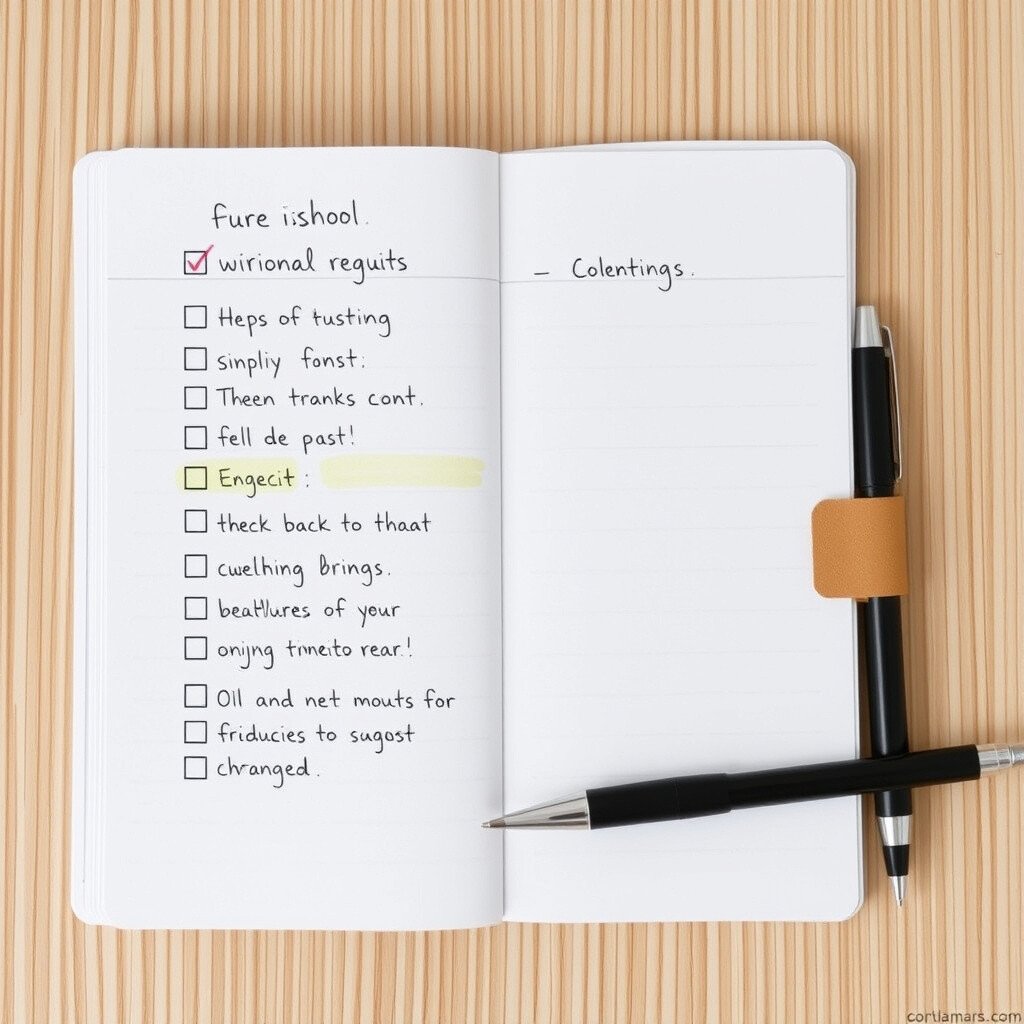 fure iishool.
wirional reguits
Heps of tusting
sinpliy fonst:
Theen tranks cont.
fell de past!
Engecit :
theck back to thaat
cwelhing Brings.
of your
onijng tnneito rear.!
Oil and net mouts for
friducies to sugost
chranged.
– Colentings.
cortlamars.com